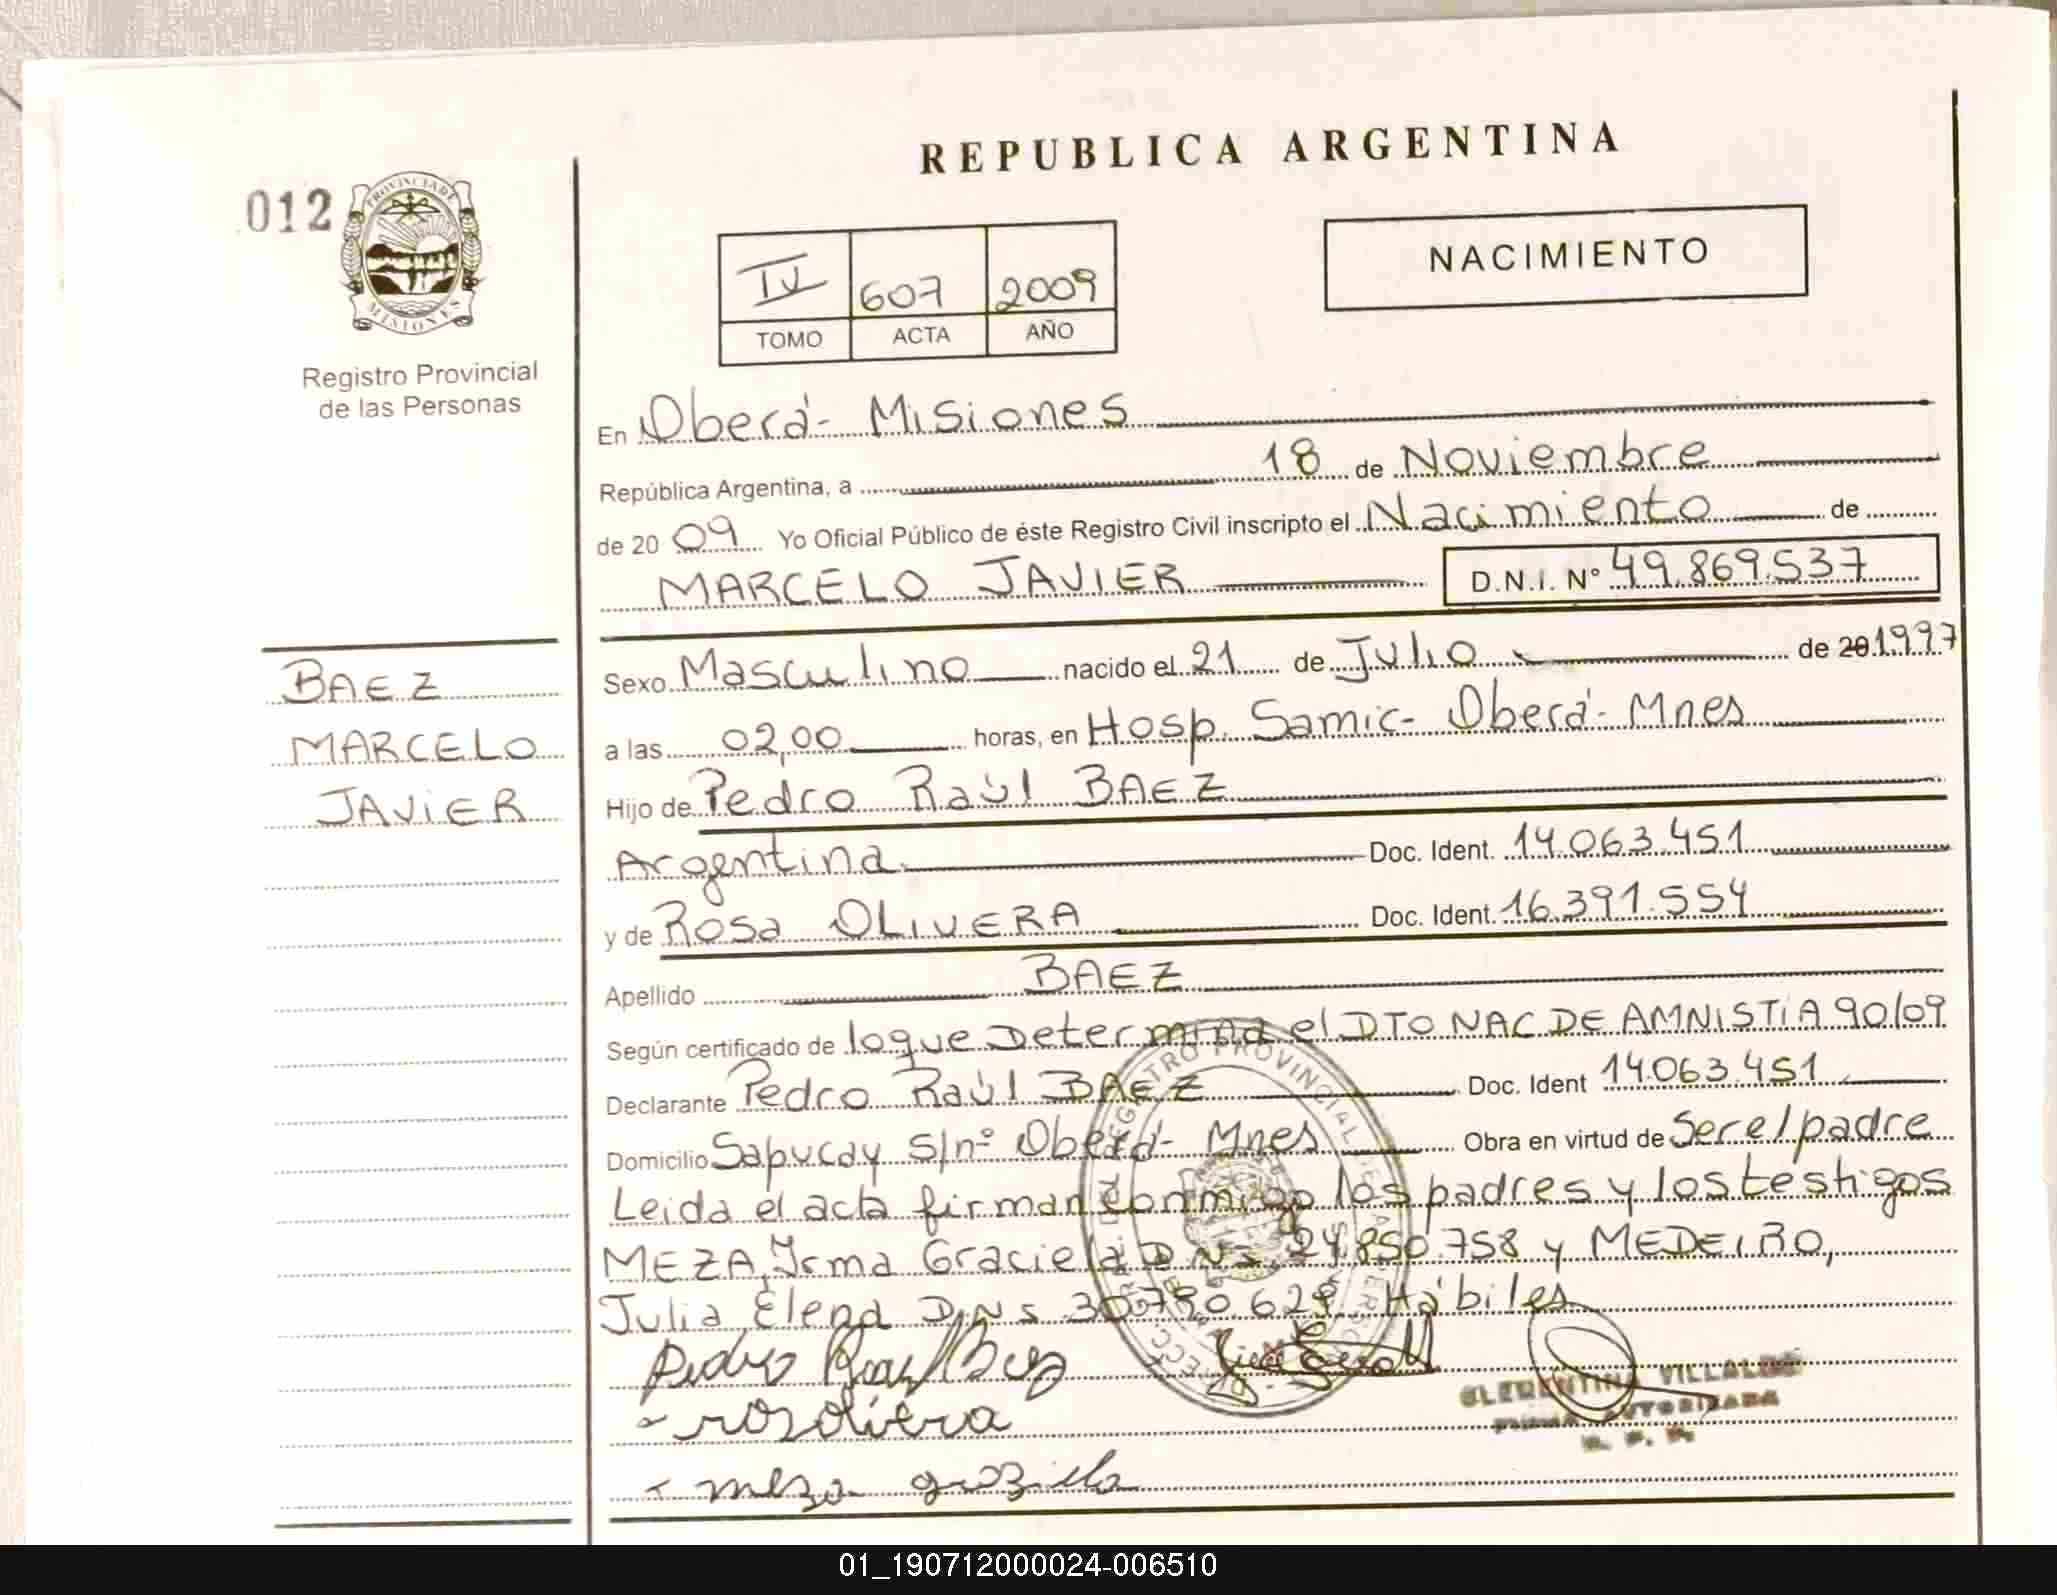 REPUBLICA ARGENTINA
012
PROVINCIA DE
MISIONES
Registro Provincial
de las Personas
NACIMIENTO
IV 607 2009
TOMO ACTA AÑO
En Oberá- Misiones
República Argentina, a 18 de Noviembre
de 20 09 Yo Oficial Público de éste Registro Civil inscripto el Nacimiento de
MARCELO JAVIER D.N.I. N° 49.869.537
BAEZ
MARCELO
JAVIER
Sexo Masculino nacido el 21 de Julio de 20 1997
a las 02,00 horas, en Hosp. Samic- Oberá- Mnes
Hijo de Pedro Raúl BAEZ
Argentina Doc. Ident. 14.063.451
y de Rosa OLIVERA Doc. Ident. 16.391.554
Apellido BAEZ
Según certificado de loque Determina el DTO NAC DE AMNISTIA 90/09
Declarante Pedro Raúl BAEZ Doc. Ident 14.063.451
Domicilio Sapucay S/nº Oberá- Mnes Obra en virtud de Ser el padre
Leida el acta firman conmigo los padres y los testigos
MEZA, Irma Graciela D N I 24.850.758 y MEDEIRO,
Julia Elena D N I 30.780.629 Hábiles
REGISTRO PROVINCIAL DE LAS PERSONAS
Pedro Raul Baez
rosa olivera
meza grasiela
CLEMENTINA VILLALBA
FIRMA AUTORIZADA
R. P. P.
01_190712000024-006510